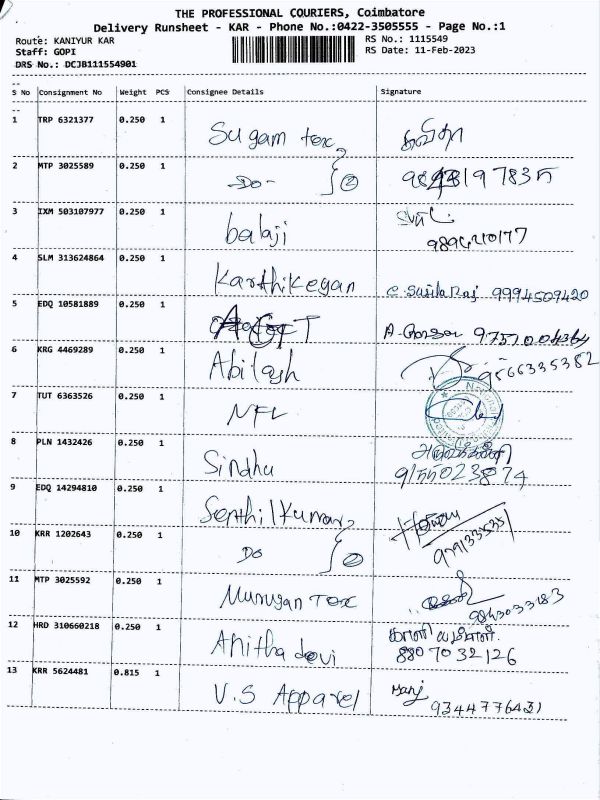 THE PROFESSIONAL COURIERS, Coimbatore
Delivery Runsheet - KAR - Phone No.:0422-3505555 - Page No.:1
Route: KANIYUR KAR RS No.: 1115549
Staff: GOPI RS Date: 11-Feb-2023
DRS No.: DCJB111554901
S No Consignment No Weight PCS Consignee Details Signature
1 TRP 6321377 0.250 1 Sugam tex, கவிதா
2 MTP 3025589 0.250 1 -Do- ② 9843197835
3 IXM 503107977 0.250 1 balaji 9894210177
4 SLM 313624864 0.250 1 Karthikeyan C. Susila Raj 9994509420
5 EDQ 10581889 0.250 1 A GFT 9751004364
6 KRG 4469289 0.250 1 Abilash 9566335382
7 TUT 6363526 0.250 1 NFL
8 PLN 1432426 0.250 1 Sindhu
9155023874
9 EDQ 14294810 0.250 1 Senthil Kumar,
10 KRR 1202643 0.250 1 Do ②
11 MTP 3025592 0.250 1 Murugan Tex 9843033183
12 HRD 310660218 0.250 1 Anitha devi
8807032126
13 KRR 5624481 0.815 1 V.S Apparel Manj
9344776431